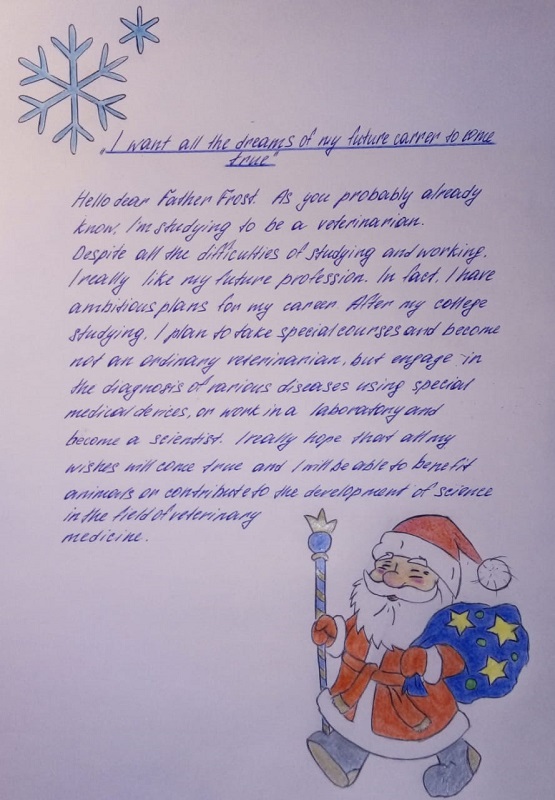 „I want all the dreams of my future carrer to come
true"
Hello dear Father Frost. As you probably already
know, I'm studying to be a veterinarian.
Despite all the difficulties of studying and working,
I really like my future profession. In fact, I have
ambitious plans for my career. After my college
studying, I plan to take special courses and become
not an ordinary veterinarian, but engage in
the diagnosis of various diseases using special
medical devices, or work in a laboratory and
become a scientist. I really hope that all my
wishes will come true and I will be able to benefit
animals or contribute to the development of science
in the field of veterinary
medicine.